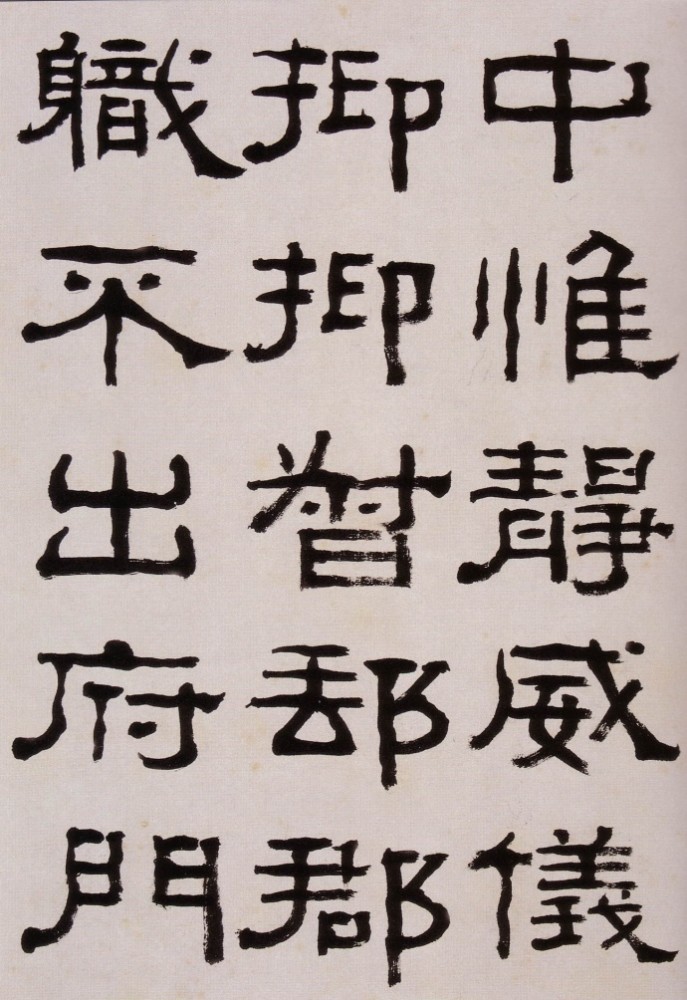 中惟靜威儀
抑抑督郵郡
職不出府門